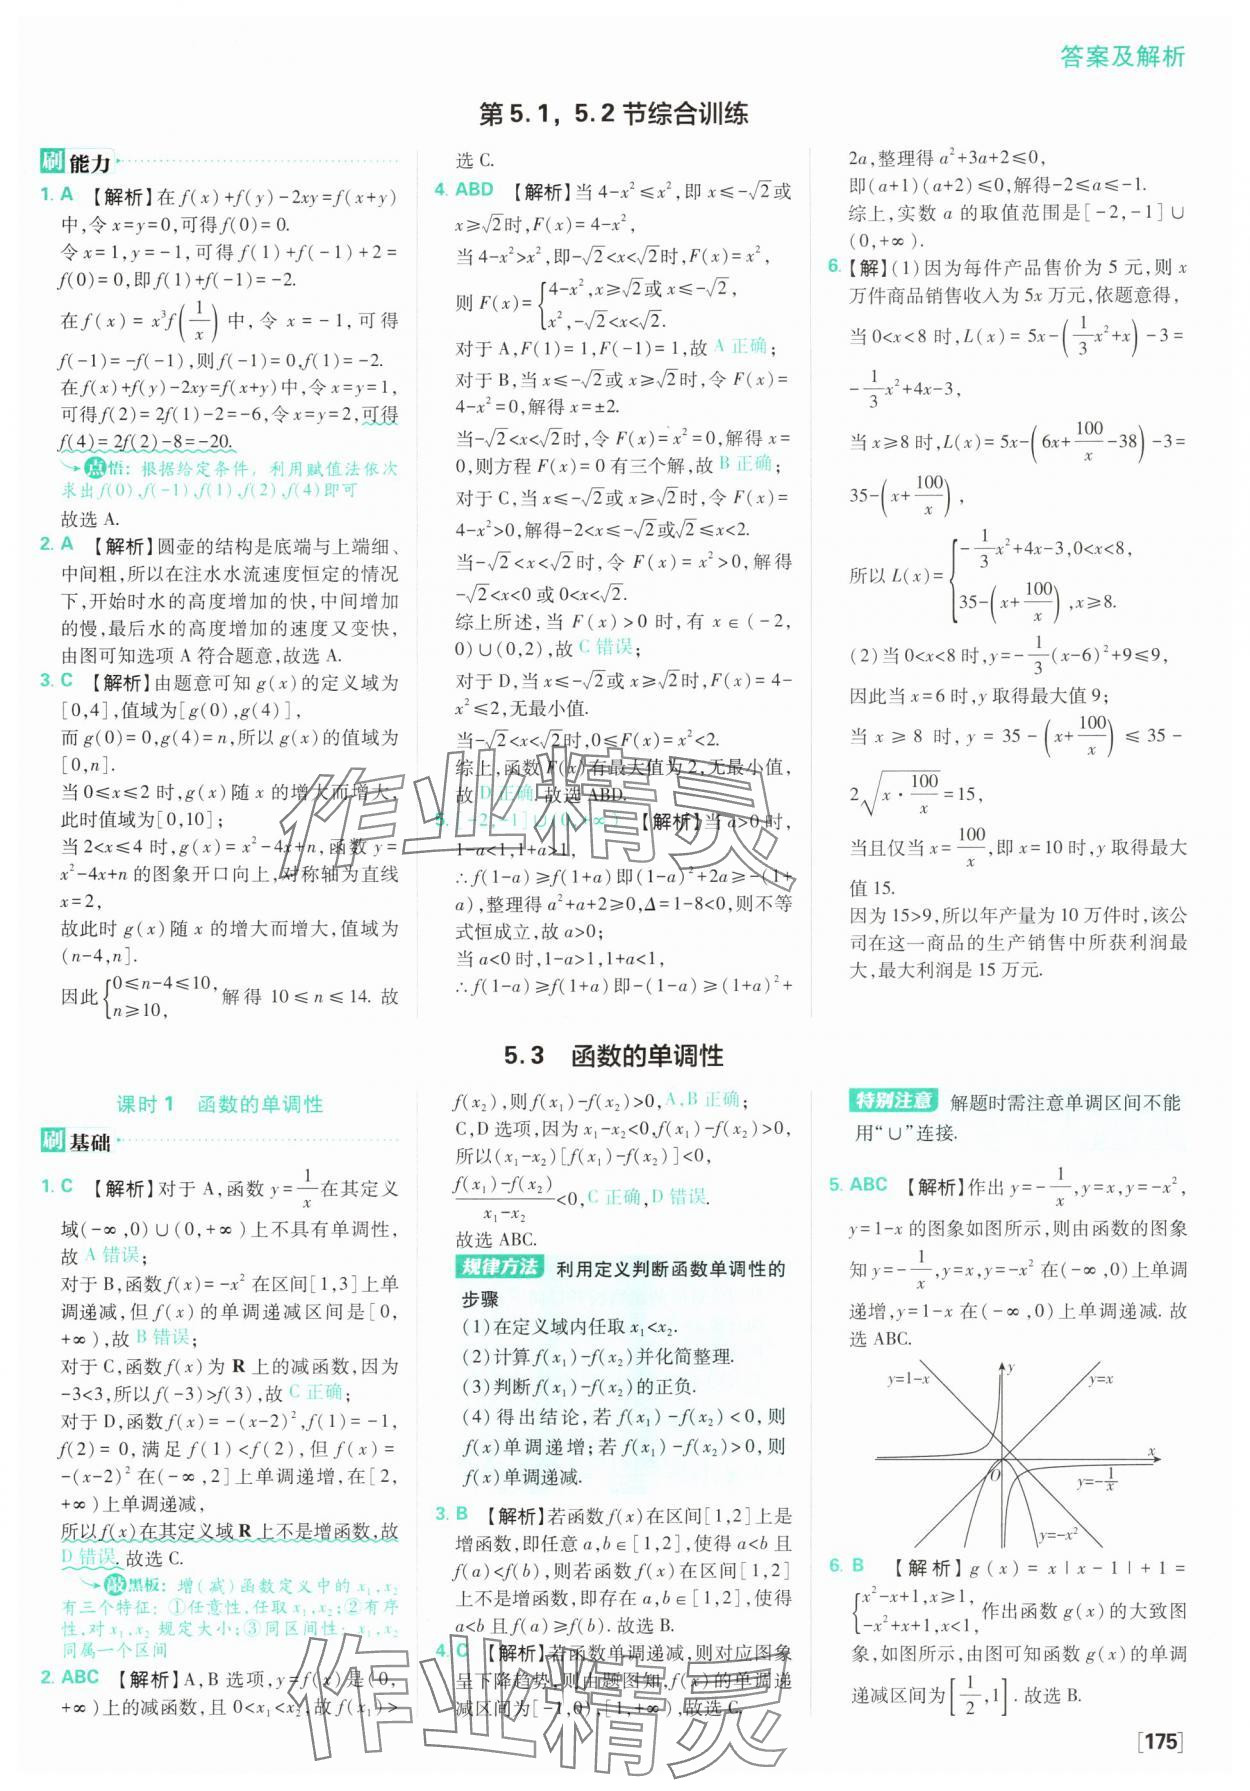 答案及解析
第 5.1, 5.2 节综合训练
刷 能力
1. A 【解析】在 f(x)+f(y)-2xy=f(x+y)
中,令 x=y=0,可得 f(0)=0.
令 x=1,y=-1,可得 f(1)+f(-1)+2=
f(0)=0,即 f(1)+f(-1)=-2.
在 f(x)=x³f(1/x) 中,令 x=-1,可得
f(-1)=-f(-1),则 f(-1)=0,f(1)=-2.
在 f(x)+f(y)-2xy=f(x+y)中,令 x=y=1,
可得 f(2)=2f(1)-2=-6,令 x=y=2,可得
f(4)=2f(2)-8=-20.
点悟:根据给定条件,利用赋值法依次
求出 f(0),f(-1),f(1),f(2),f(4)即可
故选 A.
2. A 【解析】圆壶的结构是底端与上端细、
中间粗,所以在注水水流速度恒定的情况
下,开始时水的高度增加的快,中间增加
的慢,最后水的高度增加的速度又变快,
由图可知选项 A 符合题意,故选 A.
3. C 【解析】由题意可知 g(x)的定义域为
[0,4],值域为[g(0),g(4)],
而 g(0)=0,g(4)=n,所以 g(x)的值域为
[0,n].
当 0≤x≤2 时,g(x)随 x 的增大而增大,
此时值域为[0,10];
当 2<x≤4 时,g(x)=x²-4x+n,函数 y=
x²-4x+n 的图象开口向上,对称轴为直线
x=2,
故此时 g(x)随 x 的增大而增大,值域为
(n-4,n].
因此{0≤n-4≤10, n≥10, 解得 10≤n≤14. 故
选 C.
4. ABD 【解析】当 4-x²≤x²,即 x≤-√2或
x≥√2时,F(x)=4-x²,
当 4-x²>x²,即-√2<x<√2时,F(x)=x²,
则 F(x)={4-x²,x≥√2或 x≤-√2, x²,-√2<x<√2.
对于 A,F(1)=1,F(-1)=1,故 A 正确;
对于 B,当 x≤-√2或 x≥√2时,令 F(x)=
4-x²=0,解得 x=±2.
当-√2<x<√2时,令 F(x)=x²=0,解得 x=
0,则方程 F(x)=0 有三个解,故 B 正确;
对于 C,当 x≤-√2或 x≥√2时,令 F(x)=
4-x²>0,解得-2<x≤-√2或√2≤x<2.
当-√2<x<√2时,令 F(x)=x²>0,解得
-√2<x<0 或 0<x<√2.
综上所述,当 F(x)>0 时,有 x∈(-2,
0)∪(0,2),故 C 错误;
对于 D,当 x≤-√2或 x≥√2时,F(x)=4-
x²≤2,无最小值.
当-√2<x<√2时,0≤F(x)=x²<2.
综上,函数 F(x)有最大值为 2,无最小值,
故 D 正确.故选 ABD.
5. [-2,-1]∪(0,+∞) 【解析】当 a>0 时,
1-a<1,1+a>1,
∴f(1-a)≥f(1+a)即(1-a)²+2a≥-(1+
a),整理得 a²+a+2≥0,Δ=1-8<0,则不等
式恒成立,故 a>0;
当 a<0 时,1-a>1,1+a<1,
∴f(1-a)≥f(1+a)即-(1-a)≥(1+a)²+
2a,整理得 a²+3a+2≤0,
即(a+1)(a+2)≤0,解得-2≤a≤-1.
综上,实数 a 的取值范围是[-2,-1]∪
(0,+∞).
6.【解】(1)因为每件产品售价为 5 元,则 x
万件商品销售收入为 5x 万元,依题意得,
当 0<x<8 时,L(x)=5x-(1/3 x²+x)-3=
-1/3 x²+4x-3,
当 x≥8 时,L(x)=5x-(6x+100/x-38)-3=
35-(x+100/x),
所以 L(x)={-1/3 x²+4x-3,0<x<8, 35-(x+100/x),x≥8.
(2)当 0<x<8 时,y=-1/3(x-6)²+9≤9,
因此当 x=6 时,y 取得最大值 9;
当 x≥8 时,y=35-(x+100/x)≤35-
2√(x·100/x)=15,
当且仅当 x=100/x,即 x=10 时,y 取得最大
值 15.
因为 15>9,所以年产量为 10 万件时,该公
司在这一商品的生产销售中所获利润最
大,最大利润是 15 万元.
5.3 函数的单调性
课时 1 函数的单调性
刷 基础
1. C 【解析】对于 A,函数 y=1/x 在其定义
域(-∞,0)∪(0,+∞)上不具有单调性,
故 A 错误;
对于 B,函数 f(x)=-x² 在区间[1,3]上单
调递减,但 f(x)的单调递减区间是[0,
+∞),故 B 错误;
对于 C,函数 f(x)为 R 上的减函数,因为
-3<3,所以 f(-3)>f(3),故 C 正确;
对于 D,函数 f(x)=-(x-2)²,f(1)=-1,
f(2)=0,满足 f(1)<f(2),但 f(x)=
-(x-2)² 在(-∞,2]上单调递增,在[2,
+∞)上单调递减,
所以 f(x)在其定义域 R 上不是增函数,故
D 错误.故选 C.
敲黑板:增(减)函数定义中的 x₁,x₂
有三个特征:①任意性,任取 x₁,x₂;②有序
性,对 x₁,x₂ 规定大小;③同区间性:x₁,x₂
同属一个区间
2. ABC 【解析】A,B 选项,y=f(x)是(0,
+∞)上的减函数,且 0<x₁<x₂,故 f(x₁)>
f(x₂),则 f(x₁)-f(x₂)>0,A,B 正确;
C,D 选项,因为 x₁-x₂<0,f(x₁)-f(x₂)>0,
所以(x₁-x₂)[f(x₁)-f(x₂)]<0,
(f(x₁)-f(x₂))/(x₁-x₂)<0,C 正确,D 错误.
故选 ABC.
规律方法 利用定义判断函数单调性的
步骤
(1)在定义域内任取 x₁<x₂.
(2)计算 f(x₁)-f(x₂)并化简整理.
(3)判断 f(x₁)-f(x₂)的正负.
(4)得出结论,若 f(x₁)-f(x₂)<0,则
f(x)单调递增;若 f(x₁)-f(x₂)>0,则
f(x)单调递减.
3. B 【解析】若函数 f(x)在区间[1,2]上是
增函数,即任意 a,b∈[1,2],使得 a<b 且
f(a)<f(b),则若函数 f(x)在区间[1,2]
上不是增函数,即存在 a,b∈[1,2],使得
a<b 且 f(a)≥f(b). 故选 B.
4. C 【解析】若函数单调递减,则对应图象
呈下降趋势,则由题图知,f(x)的单调递
减区间为[-1,0),[1,+∞),故选 C.
特别注意 解题时需注意单调区间不能
用“∪”连接.
5. ABC 【解析】作出 y=-1/x,y=x,y=-x²,
y=1-x 的图象如图所示,则由函数的图象
知 y=-1/x,y=x,y=-x² 在(-∞,0)上单调
递增,y=1-x 在(-∞,0)上单调递减. 故
选 ABC.
y=1-x y y=x
x
O y=-1/x
y=-x²
6. B 【解析】g(x)=x|x-1|+1=
{x²-x+1,x≥1, -x²+x+1,x<1, 作出函数 g(x)的大致图
象,如图所示,由图可知函数 g(x)的单调
递减区间为[1/2,1]. 故选 B.
作业精灵
作业精灵
[175]